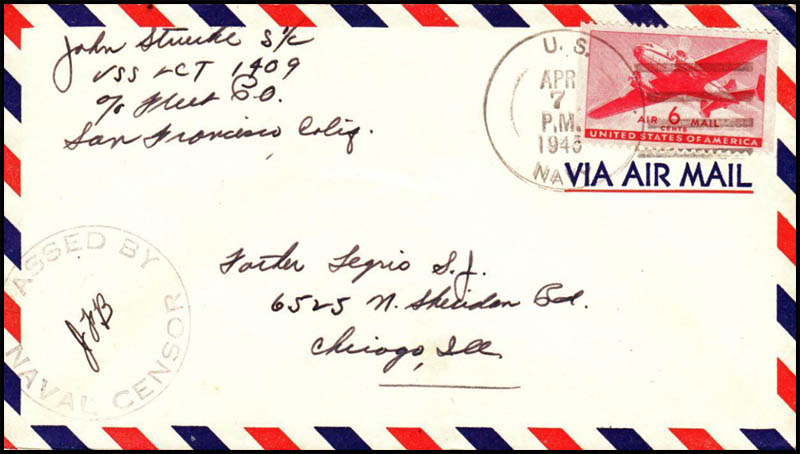 John Struke S/c
USS LCT 1409
c/o Fleet P.O.
San Francisco, Calif.
U. S.
APR
7
P.M.
1945
NAVY
AIR 6 MAIL
CENTS
UNITED STATES OF AMERICA
VIA AIR MAIL
PASSED BY
NAVAL CENSOR
JFB
Father Legris S.J.
6525 N. Sheridan Rd.
Chicago, Ill.